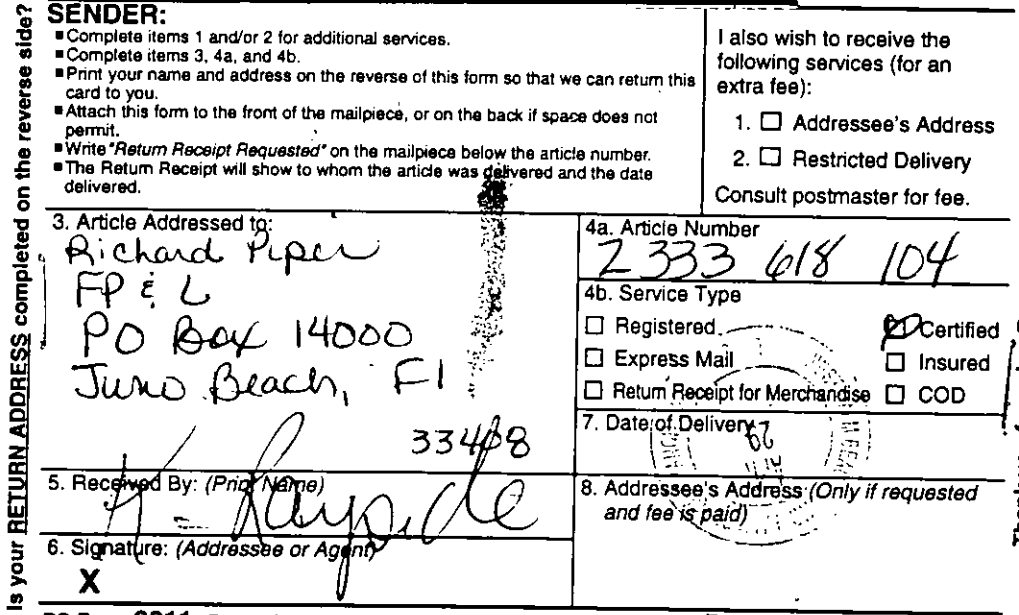 Is your RETURN ADDRESS completed on the reverse side?
SENDER:
■Complete items 1 and/or 2 for additional services.
■Complete items 3, 4a, and 4b.
■Print your name and address on the reverse of this form so that we can return this
card to you.
■Attach this form to the front of the mailpiece, or on the back if space does not
permit.
■Write "Return Receipt Requested" on the mailpiece below the article number.
■The Return Receipt will show to whom the article was delivered and the date
delivered.
I also wish to receive the
following services (for an
extra fee):
1. ☐ Addressee's Address
2. ☐ Restricted Delivery
Consult postmaster for fee.
3. Article Addressed to:
Richard Piper
FP & L
PO Box 14000
Juno Beach, Fl
33408
4a. Article Number
Z 333 618 104
4b. Service Type
☐ Registered
☑ Certified
☐ Express Mail
☐ Insured
☐ Return Receipt for Merchandise
☐ COD
7. Date of Delivery
29
5. Received By: (Print Name)
K
8. Addressee's Address (Only if requested
and fee is paid)
6. Signature: (Addressee or Agent)
X
3811